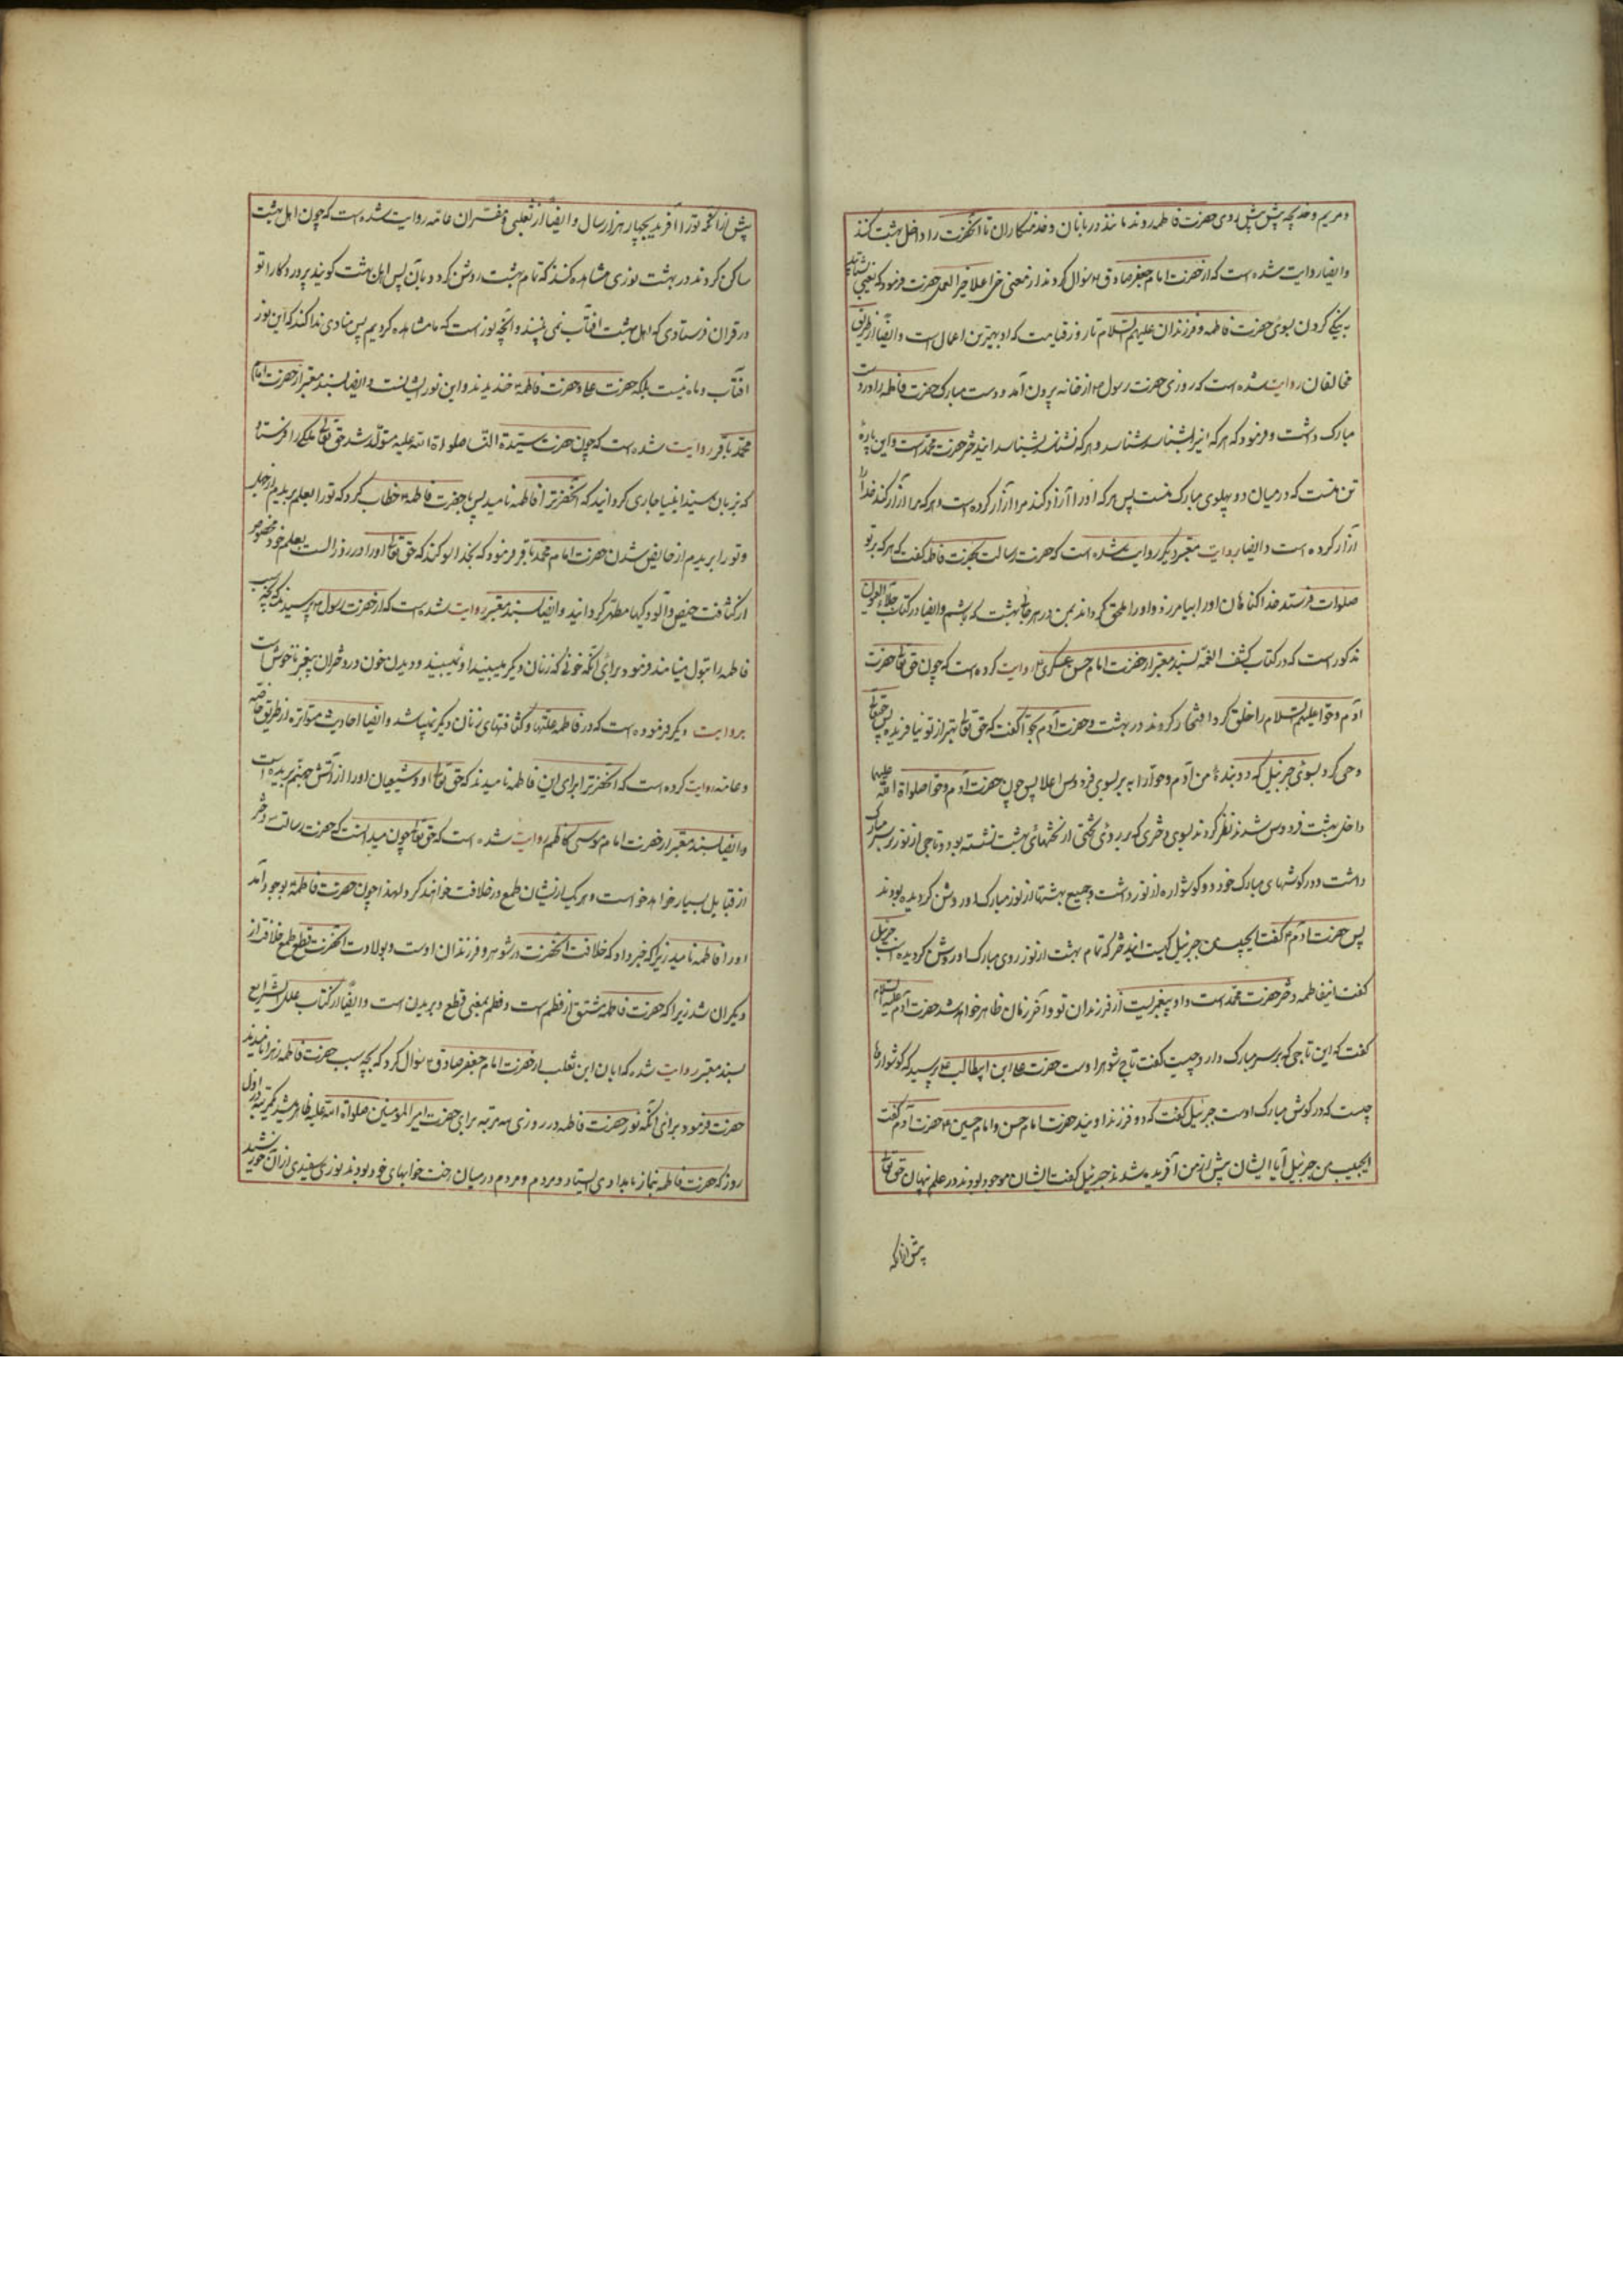 و مریم و خدیجه پیش پیش روی حضرت فاطمه روند مانند دربانان و خدمتکاران تا آنحضرت را داخل بهشت کنند
و ایضا روایت شده است که از حضرت امام جعفر صادق ؑ سؤال کردند از معنی حی اعلا خیر العمل حضرت فرمود که یعنی بشتابید
به نیکی کردن بسوی حضرت فاطمه و فرزندان علیهم السلام تا روز قیامت که او بهترین اعمال است و ایضا از طریق
مخالفان روایت شده است که روزی حضرت رسول ؐ از خانه بیرون آمد و دست مبارک حضرت فاطمه را در دست
مبارک داشت و فرمود که هر که اینرا شناسد شناسد و هر که نشناسد بشناسد ایندختر حضرت محمد است و این پارهٔ
تن منست که در میان دو پهلوی مبارک منست پس هر که او را آزار کند مرا آزار کرده است و هر که مرا آزار کند خدا را
آزار کرده است و ایضا روایت معتبر دیکر روایت شده است که حضرت رسالت بحضرت فاطمه گفت که هر که بر تو
صلوات فرستد خدا کناهان او را بیامرزد و او را ملحق کرداند بمن در هر جای بهشت که باشم و ایضا در کتاب جلاء العیون
مذکور است که در کتاب کشف الغمه بسند معتبر از حضرت امام حسن عسکری ؑ روایت کرده است که چون حق تعالی حضرت
آدم و حوا علیهم السلام را خلق کرد افتخار کردند در بهشت و حضرت آدم بحوا گفت که حق تعالی بهتر از تو نیافریده پس حقتعالی
وحی کرد بسوی جبرئیل که دو بندهٔ من آدم و حوا را به بر بسوی فردوس اعلا پس چون حضرت آدم و حوا صلواة الله علیهما
داخل بهشت فردوس شدند نظر کردند بسوی دختری که بر روی تختی از تختهای بهشت نشسته بود و تاجی از نور بر سر مبارک
داشت و در کوشهای مبارک خود دو کوشواره از نور داشت و جمیع بهشتها از نور مبارک او روشن کردیده بودند
پس حضرت آدم ؑ گفت ایحبیب من جبرئیل کیست ایندختر که تمام بهشت از نور روی مبارک او روشن کردیده است جبرئیل
گفت اینفاطمه دختر حضرت محمد است و او پیغمبریست از فرزندان تو و آخر زمان ظاهر خواهد شد حضرت آدم علیه السلام
گفت که این تاجی که بر سر مبارک دارد چیست گفت تاج شوهر اوست حضرت علی ابن ابیطالب علی پرسید که کوشوارها
چیست که در کوش مبارک اوست جبرئیل گفت که دو فرزند اویند حضرت امام حسن و امام حسین ؑ حضرت آدم گفت
ایحبیب من جبرئیل آیا ایشان پیش از من آفریده شدند جبرئیل گفت ایشان موجود بودند در علم نهان حق تعالی
پیش از آنکه
پیش از آنکه تو را آفریند بچهار هزار سال و ایضا از ثعلبی و مفسران عامه روایت شده است که چون اهل بهشت
ساکن کردند در بهشت نوری مشاهده کنند که تمام بهشت روشن کردد بآن پس اهل بهشت کویند پروردکارا تو
در قران فرستادی که اهل بهشت افتاب نمی بینند و آنچه نور است که ما مشاهده کردیم پس منادی ندا کند که این نور
افتاب و ماه نیست بلکه حضرت علی و حضرت فاطمه خندیدند و این نور ایشانست و ایضا بسند معتبر از حضرت امام
محمد باقر روایت شده است که چون حضرت سیدة النسا صلواة الله علیه متولد شد حق تعالی ملکی را فرستاد
که بزبان سید انبیا جاری کردانید که آنحضرترا فاطمه نامید پس بحضرت فاطمه خطاب کرد که تو را بعلم بریدم از جهل
و تو را بریدم از حایض شدن حضرت امام محمد باقر فرمود که بخدا سوکند که حق تعالی او را در روز الست بعلم خود مخصوص
از کثافت حیض و آلودکیها مطهر کردانید و ایضا بسند معتبر روایت شده است که از حضرت رسول ؐ پرسیدند که بچه سبب
فاطمه را بتول مینامند فرمود برای آنکه خونی که زنان دیکر میبینند او نمیبیند و دیدن خون در دختران پیغمبر ناخوش است
بروایت دیکر فرموده است که در فاطمه علتها و کثافتهای زنان دیکر نمیباشد و ایضا احادیث متواتره از طریق خاصه
و عامه روایت کرده است که آنحضرترا برای این فاطمه نامیدند که حق تعالی او و شیعیان او را از آتش جهنم بریده است
و ایضا بسند معتبر از حضرت امام موسی کاظم روایت شده است که حق تعالی چون میدانست که حضرت رسالت دختر
از قبایل بسیار خواهد خواست و هر یک از ایشان طمع در خلافت خواهند کرد لهذا چون حضرت فاطمه بوجود آمد
او را فاطمه نامید زیرا که خبر داد که خلافت آنحضرت در شوهر و فرزندان اوست و بولادت آنحضرت قطع طمع خلافت از
دیکران شد زیرا که حضرت فاطمه مشتق از فطم است و فطم بمعنی قطع و بریدن است و ایضا از کتاب علل الشرایع
بسند معتبر روایت شده که ابان ابن ثعلب از حضرت امام جعفر صادق ؑ سؤال کرد که بچه سبب حضرت فاطمه زهرا نامیدند
حضرت فرمود برای آنکه نور حضرت فاطمه در روزی سه مرتبه برای حضرت امیر المومنین صلواة الله علیه ظاهر میشد یکمرتبه در اول
روز که حضرت فاطمه بنماز بامدادی ایستاد و مردم و مردم در میان رخت خوابهای خود بودند نوری سفیدی از آن خورشید